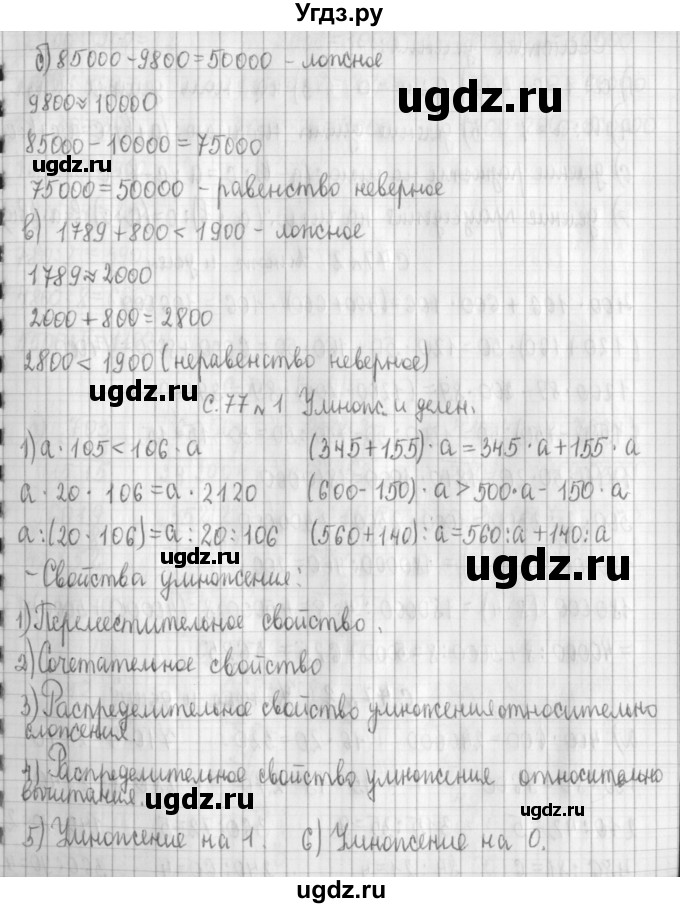 Угдз.ру
б) 85000 - 9800 = 50000 - ложное
ugdz.ru
9800 ≈ 10000
85000 - 10000 = 75000
ugdz.ru
ugdz.ru
75000 = 50000 - равенство неверное
в) 1789 + 800 < 1900 - ложное
1789 ≈ 2000
2000 + 800 = 2800
2800 < 1900 (неравенство неверное)
ugdz.ru
ugdz.ru
С. 77 № 1 Умнож. и делен.
1) а · 105 < 106 · а (345 + 155) · а = 345 · а + 155 · а
а · 20 · 106 = а · 2120 (600 - 150) · а > 500 · а - 150 · а
а : (20 · 106) = а : 20 : 106 (560 + 140) : а = 560 : а + 140 : а
ugdz.ru
ugdz.ru
- Свойства умножения:
1) Переместительное свойство.
2) Сочетательное свойство
3) Распределительное свойство умножения относительно
сложения.
ugdz.ru
4) Распределительное свойство умножения относительно
вычитания.
ugdz.ru
ugdz.ru
5) Умножение на 1. 6) Умножение на 0.
ugdz.ru